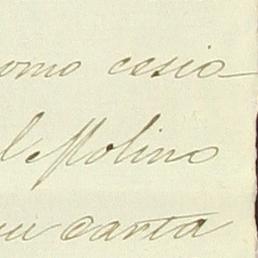 omo cesio
el Molino
su carta